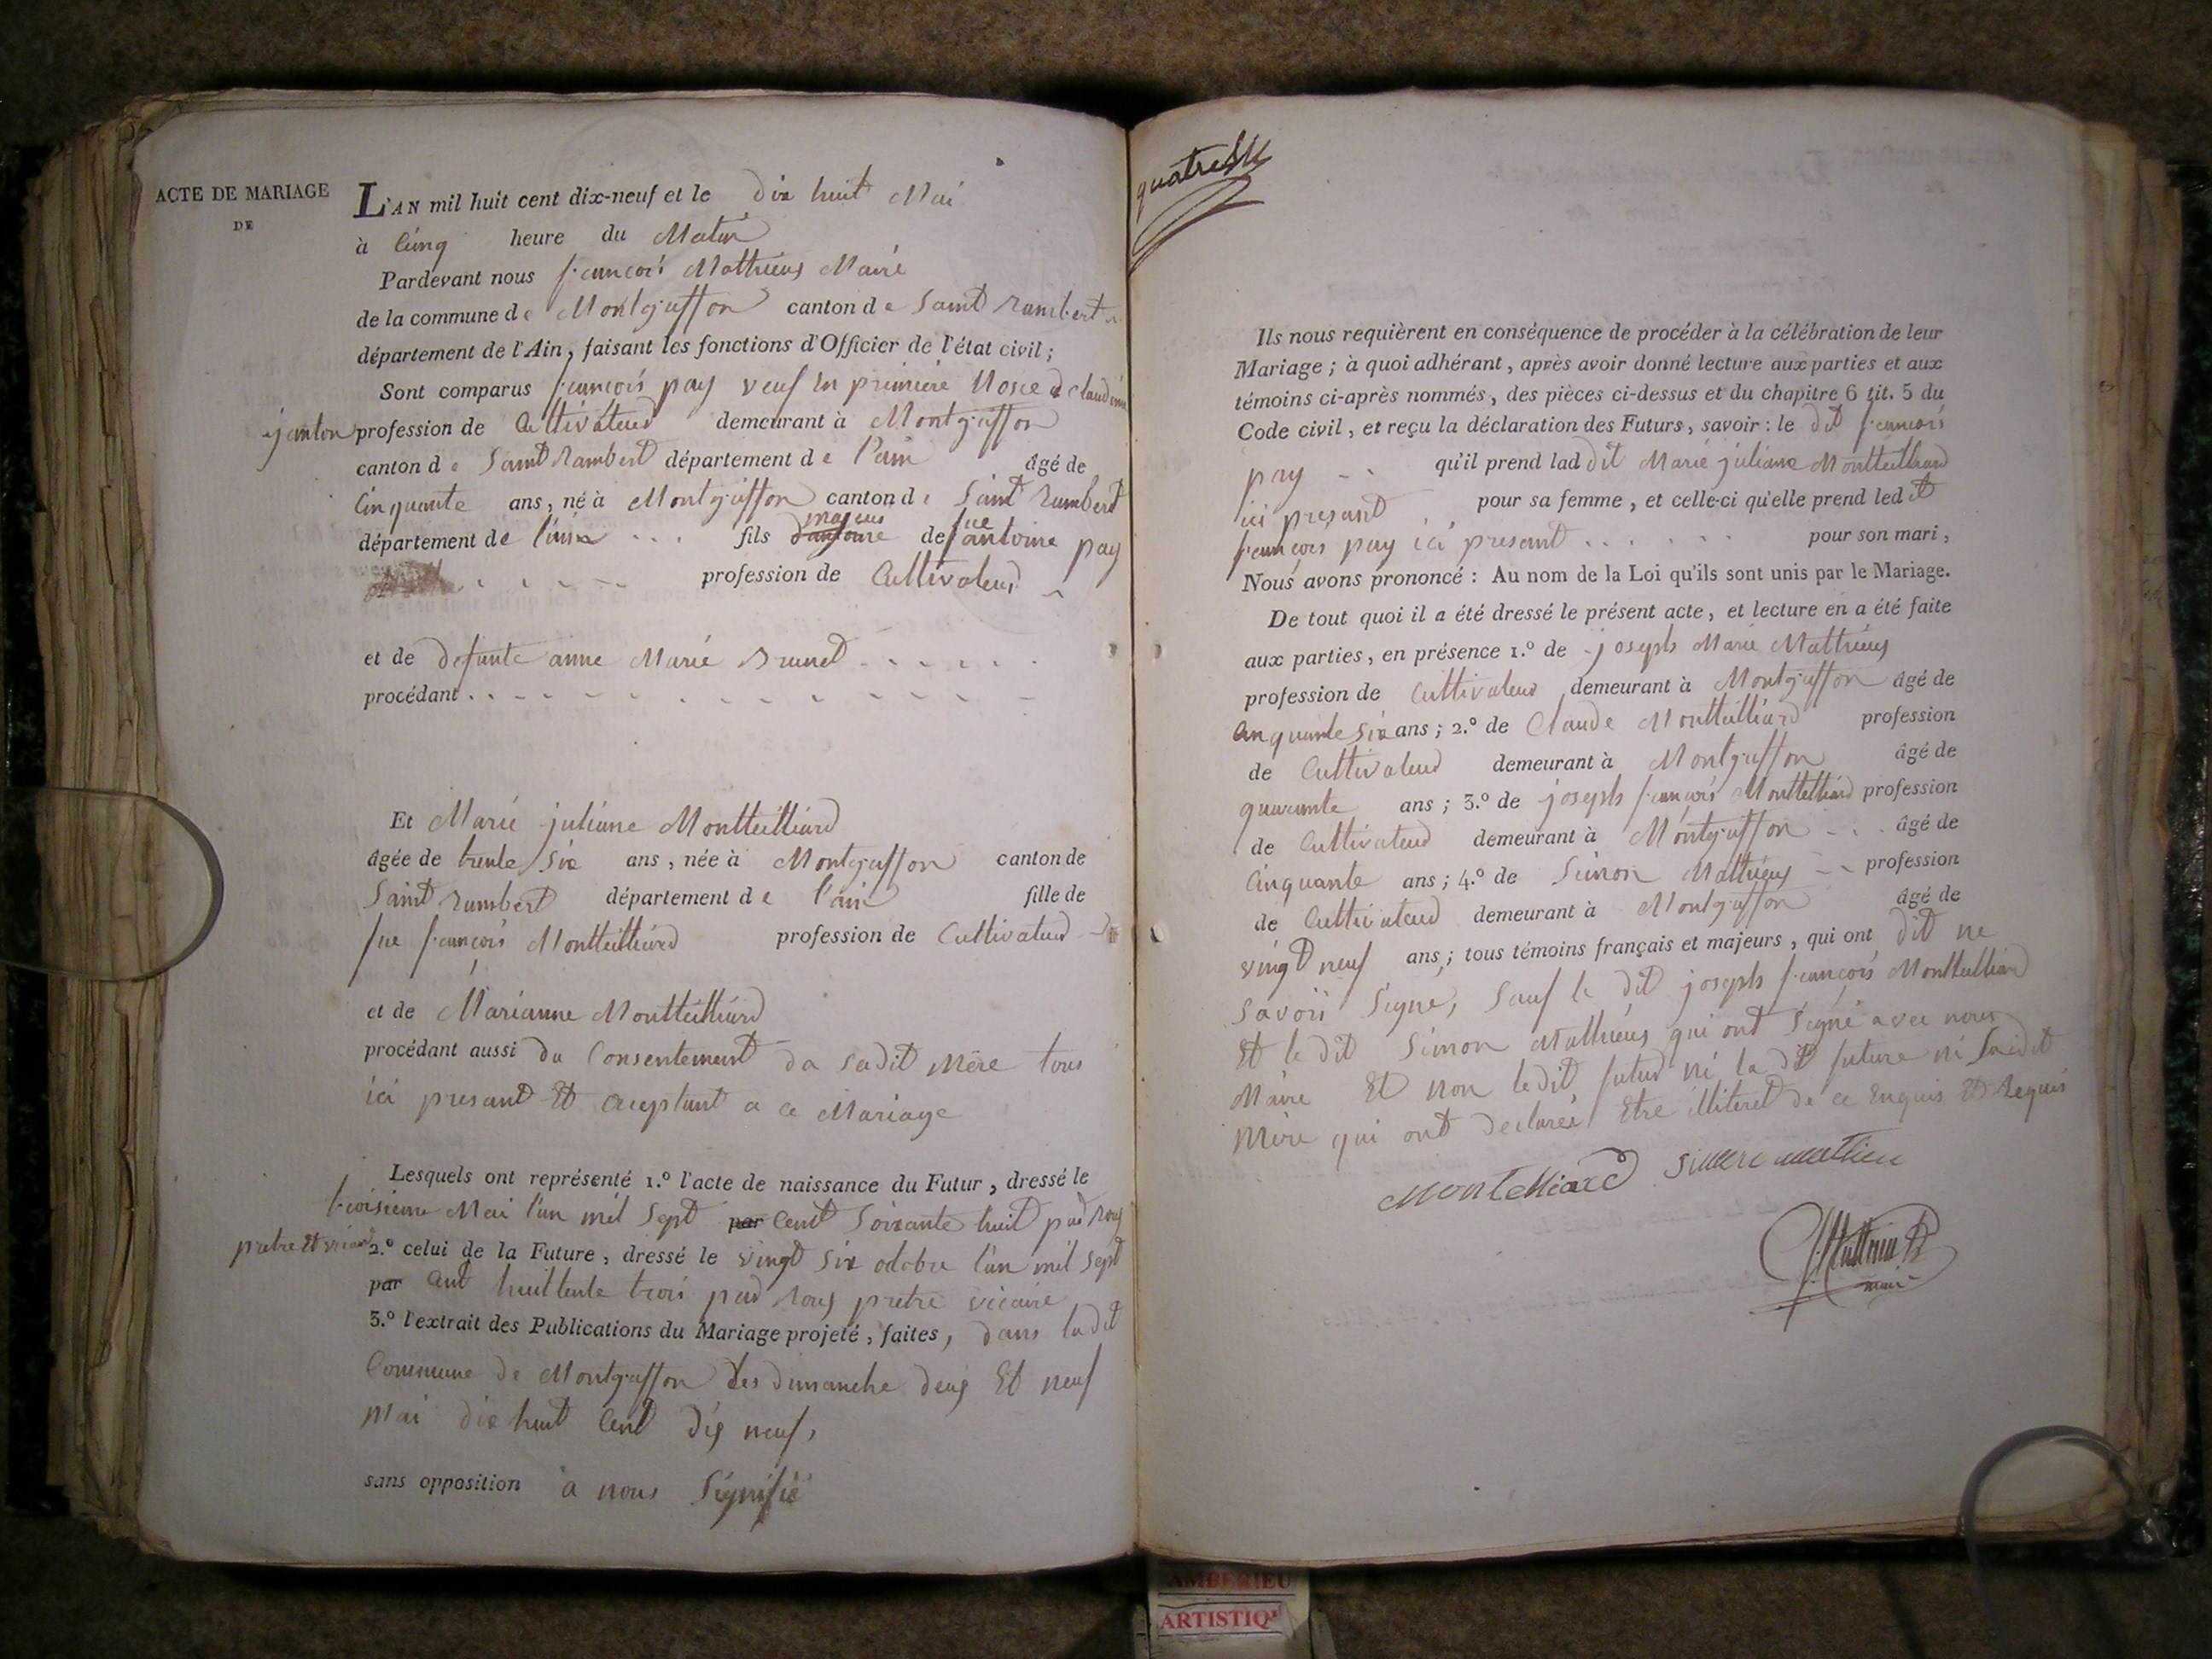 ACTE DE MARIAGE
DE
L'AN mil huit cent dix-neuf et le dix huit Mai
à Cinq heure du Matin
Pardevant nous françois Mathieus Maire
de la commune de Montgriffon canton de Saint Rambert
département de l'Ain, faisant les fonctions d'Officier de l'état civil;
Sont comparus françois pay veuf en primiere Nosce de Claudine
janton profession de Cultivateur demeurant à Montgriffon
canton de Saint Rambert département de l'ain âgé de
Cinquante ans, né à Montgriffon canton de Saint Rambert
département de l'ain fils majeur de fue antoine pay
profession de Cultivateur
et de defunte anne Marie Brunet
procédant
Et Marie juliane Montteilliard
âgée de trente Six ans, née à Montgriffon canton de
Saint Rambert département de l'ain fille de
fue françois Montteilliard profession de Cultivateur
et de Marianne Montteilliard
procédant aussi du Consentement da sadit Mère tous
ici presant Et aceptant a ce Mariage
Lesquels ont représenté 1.º l'acte de naissance du Futur, dressé le
troisieme Mai l'an mil Sept par Cent Soixante huit par Roux
pretre Et vicaire
2.º celui de la Future, dressé le vingt six octobre l'an mil Sept
par Cent huittente trois par Roux pretre vicaire
3.º l'extrait des Publications du Mariage projeté, faites, dans ladit
Commune de Montgriffon les dimanche deux Et neuf
Mai dix huit Cent dix neuf,
sans opposition a nous Signifié
Ils nous requièrent en conséquence de procéder à la célébration de leur
Mariage; à quoi adhérant, après avoir donné lecture aux parties et aux
témoins ci-après nommés, des pièces ci-dessus et du chapitre 6 tit. 5 du
Code civil, et reçu la déclaration des Futurs, savoir: le dit françois
pay qu'il prend lad dit Marie juliane Montteilliard
ici presant pour sa femme, et celle-ci qu'elle prend led it
françois pay ici presant pour son mari,
Nous avons prononcé: Au nom de la Loi qu'ils sont unis par le Mariage.
De tout quoi il a été dressé le présent acte, et lecture en a été faite
aux parties, en présence 1.º de joseph Marie Mathieus
profession de Cultivateur demeurant à Montgriffon âgé de
Cinquante six ans; 2.º de Claude Montteilliard profession
de Cultivateur demeurant à Montgriffon âgé de
quarante ans; 3.º de joseph françois Monttelliard profession
de Cultivateur demeurant à Montgriffon âgé de
Cinquante ans; 4.º de Simon Mathieus profession
de Cultivateur demeurant à Montgriffon âgé de
vingt neuf ans; tous témoins français et majeurs, qui ont dit ne
Savoir Signe, Sauf le dit joseph françois Monttelliard
Et le dit Simon Mathieus qui ont Signé avec nous
Maire Et non ledit futur ni la dit future ni sadit
Mère qui ont declarés Etre illiteret de ce Enquis Et Requis
Montelliard Simon mathieu
maire
AMBERIEU
ARTISTIQ